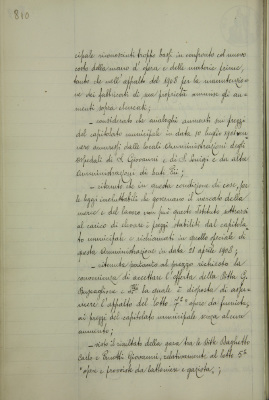 810
cipale riconosciuti troppo bassi in confronto col nuovo
costo della mano d'opera e delle materie prime,
tanto che nell'appalto del 1908 per la manutenzio-
ne dei fabbricati di sua proprietà ammise gli au-
menti sopra elencati;
– considerato che analoghi aumenti sui prezzi
del capitolato municipale in data 10 luglio
vennero ammessi dalle locali Amministrazioni degli
ospedali di S. Giovanni e di S. Luigi e da altre
Amministrazioni di Enti Pii;
– ritenuto che in questa condizione di cose, per
le leggi ineluttabili che governano il mercato della
mano e del lavoro non può questo Istituto sottrarsi
al carico di elevare i prezzi stabiliti dal capitola-
to municipale e richiamati in quello speciale di
questa Amministrazione in data 21 aprile 1908;
– ritenuta pertanto al prezzo indicato la
convenienza di accettare l'offerta della Ditta G.
la quale è disposta ad assu-
mere l'appalto del lotto 7° opere da
ai prezzi del capitolato municipale senza alcun
aumento;
– visto il risultato della gara tra le Ditte
Carlo e Giovanni, relativamente al lotto 5°
opere e provviste da lattoniere e gazista;